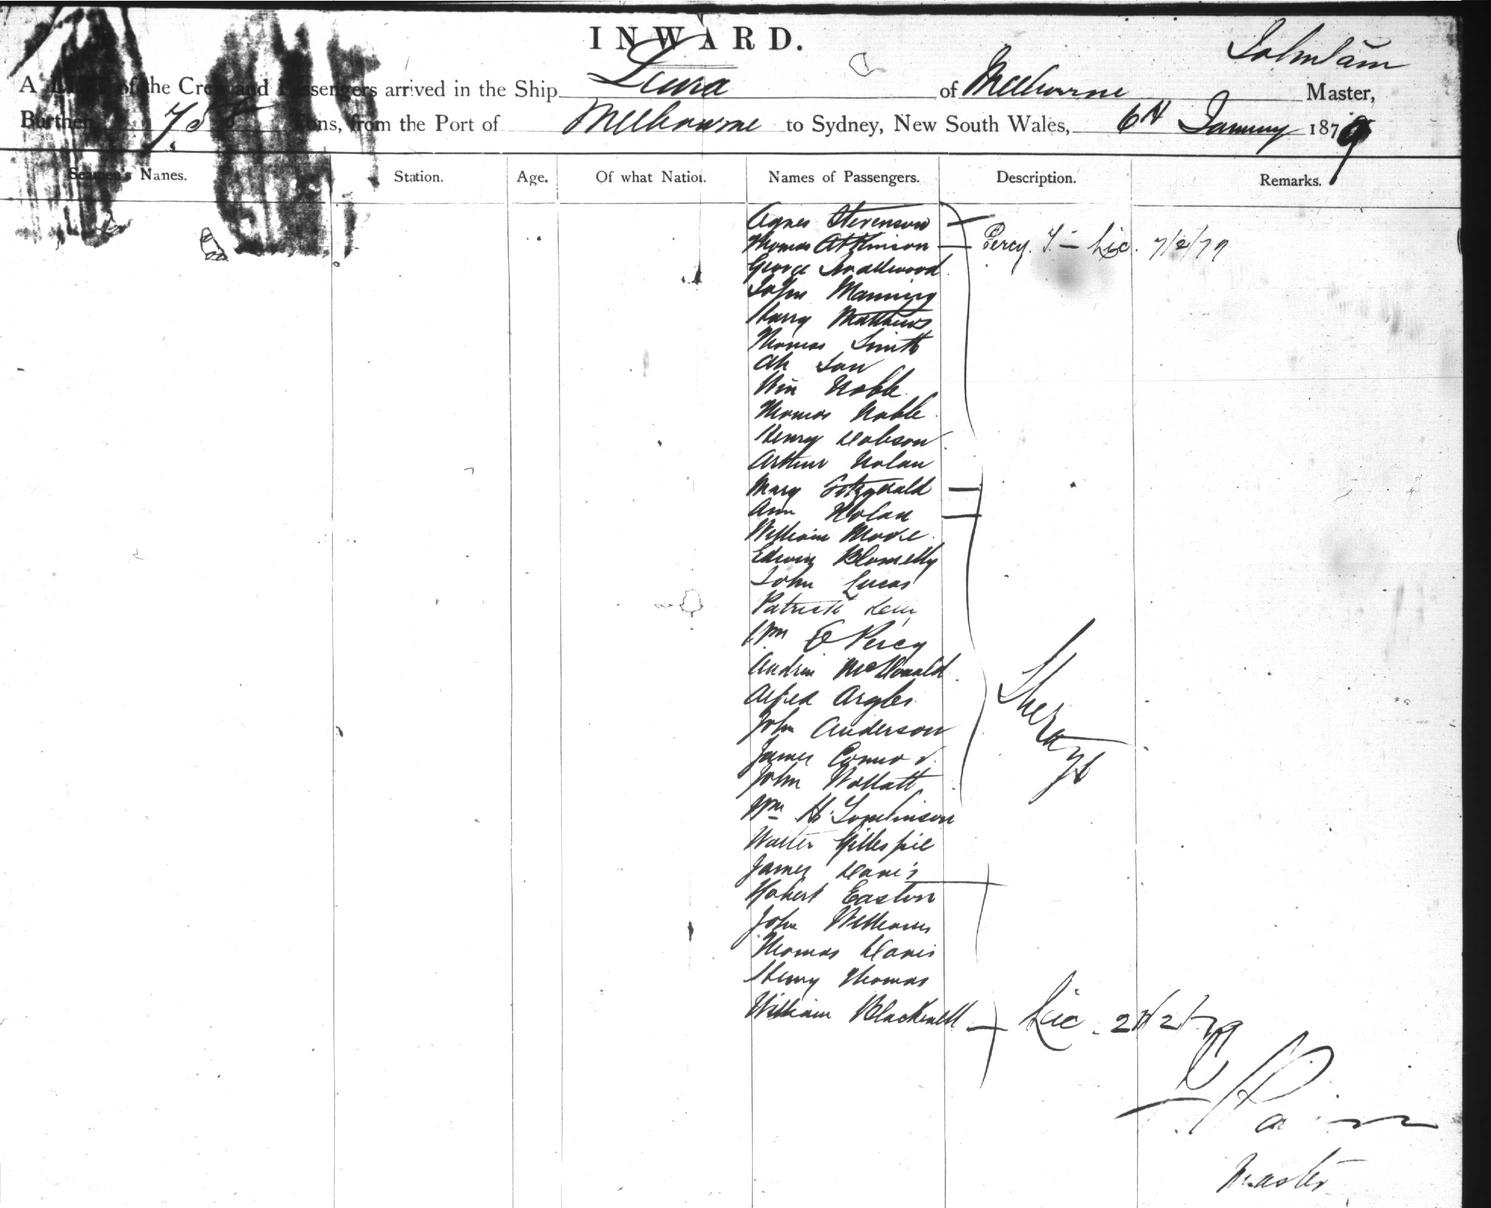 INWARD.
A of the Crew and Passengers arrived in the Ship Leura of Melbourne Master,
Burthen Tons, from the Port of Melbourne to Sydney, New South Wales, 6th January 1879
Seamen's Names. Station. Age. Of what Nation. Names of Passengers. Description. Remarks.
Agnes Stevenson
Thomas Atkinson Percy Lic. 7/2/79
George Smallwood
John Manning
Harry Matthews
Thomas Smith
Ah
Wm Noble
Thomas Noble
Henry Dobson
Arthur Nolan
Mary Fitzgerald
Ann Nolan
William Moore
Edwin
John Lucas
Patrick
Wm E Percy
Andrew McDonald
Alfred Argles
John Anderson
James
John Wollatt
Steerage
Wm H Tomlinson
Walter Gillespie
James Davis
Robert Easton
John Williams
Thomas Davis
Henry Thomas
William Blackwell Lic. 2/79
Master